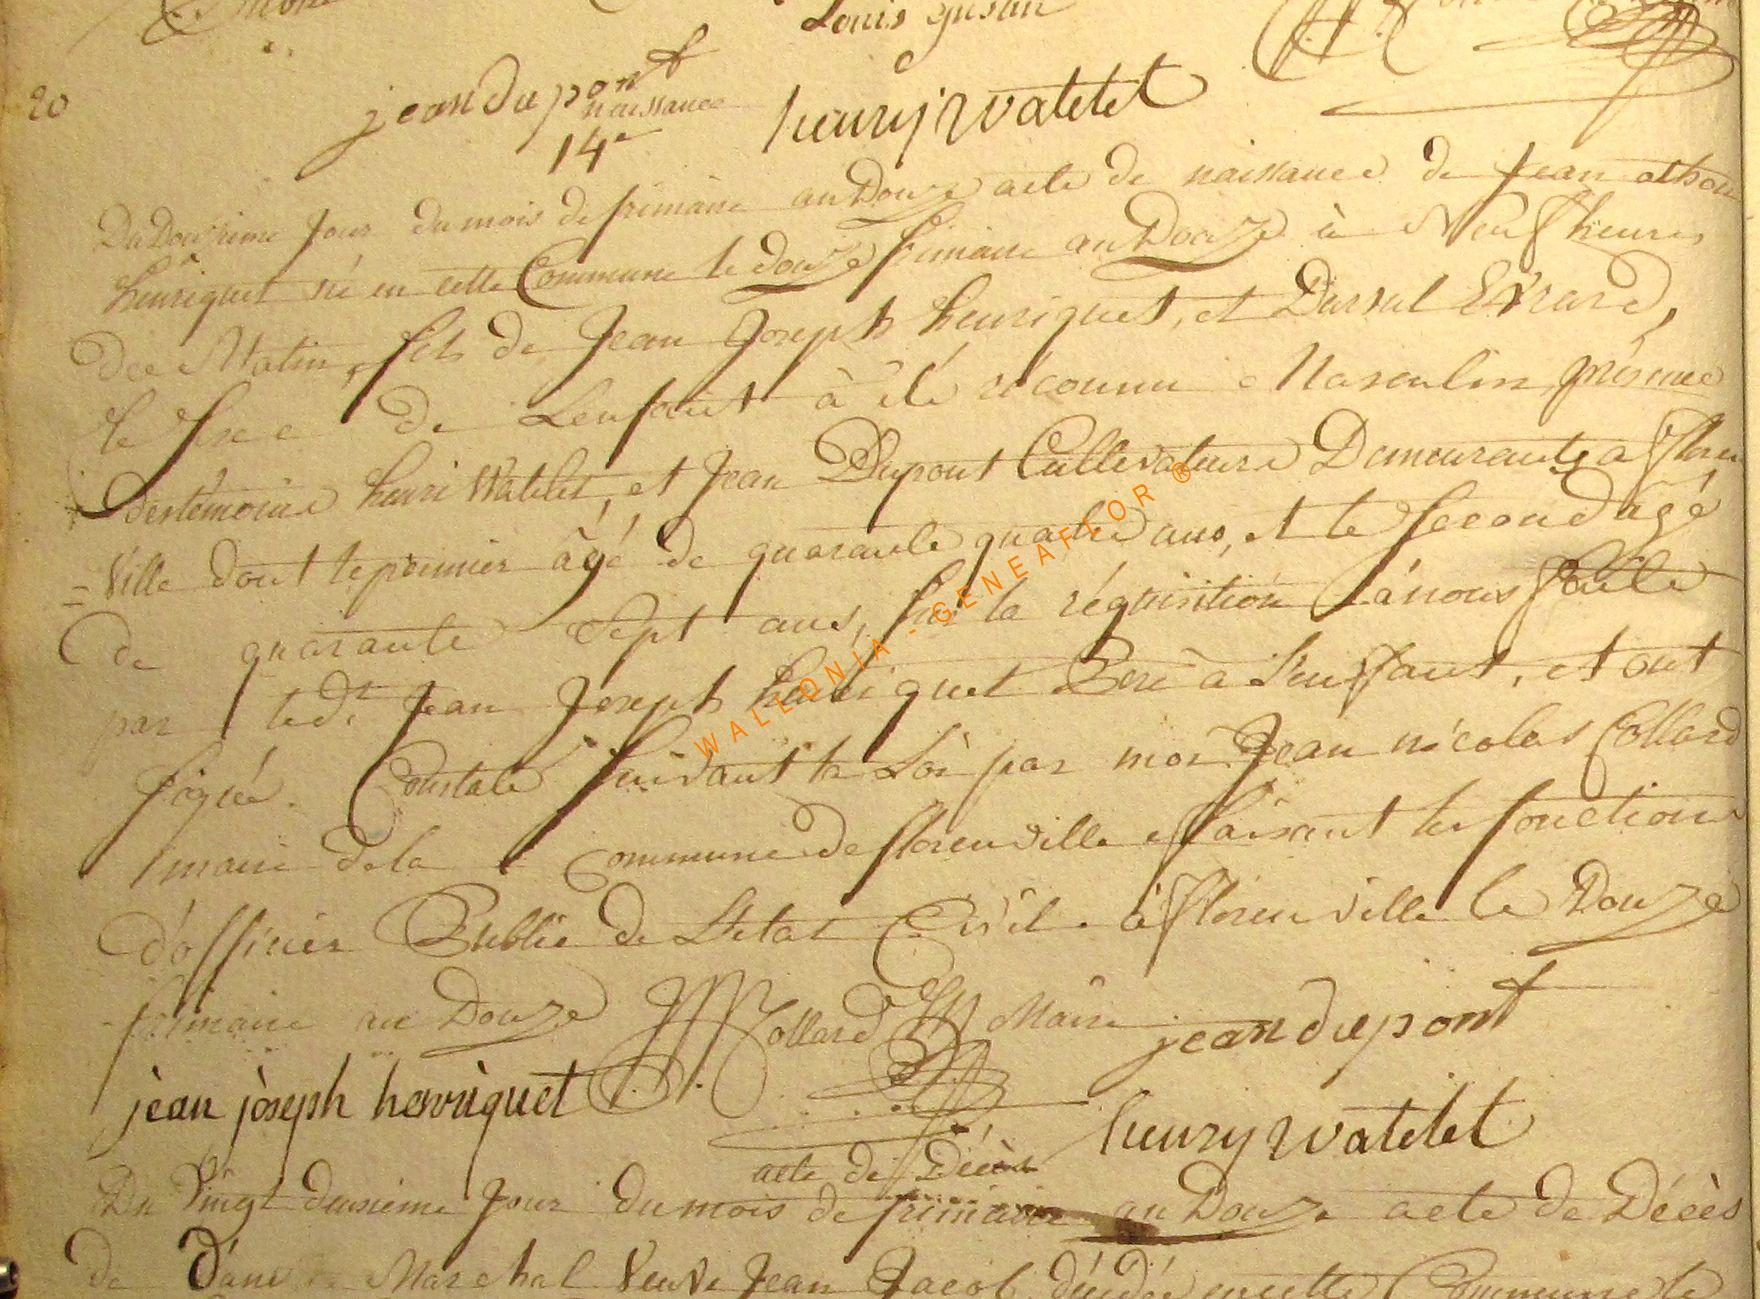 Louis
20
jean dupont
naissance
14e
henry watelet
Du Douzieme Jour du mois de frimaire an Douze acte de naissance de Jean
henriquet né en cette Commune le douze frimaire an Douze à Neuf heures
Dee Matin, fils de Jean Joseph henriquet, et Evrard,
le Sexe de Lenfant à été réconnu Masculin, présence
destémoins henri Watelet, et Jean Dupont Cultivateurs Demeurants a floren
= Ville dont le premier âgé de quarante quatre ans, et le Second âgé
de quarante Sept ans, Sur la réquisition à nous faite
par ledt Jean Joseph henriquet Pere à l'enffant, et ont
Signé. Constaté Suivant la Loi par moi Jean nicolas Collard
maire dela Commune de florenville faisant les fonctions
d'officier Public de L'état Civil. à florenville le Douze
frimaire an Douze Collard Maire jean dupont
jean joseph henriquet
henry watelet
acte de Décès
Du Vingt deuxieme Jour du mois de frimaire an Douze acte de Décès
de Marchal Veuve Jean Jacob, décédée en cette Commune le
WALLONIA - GENEAFLOR ®